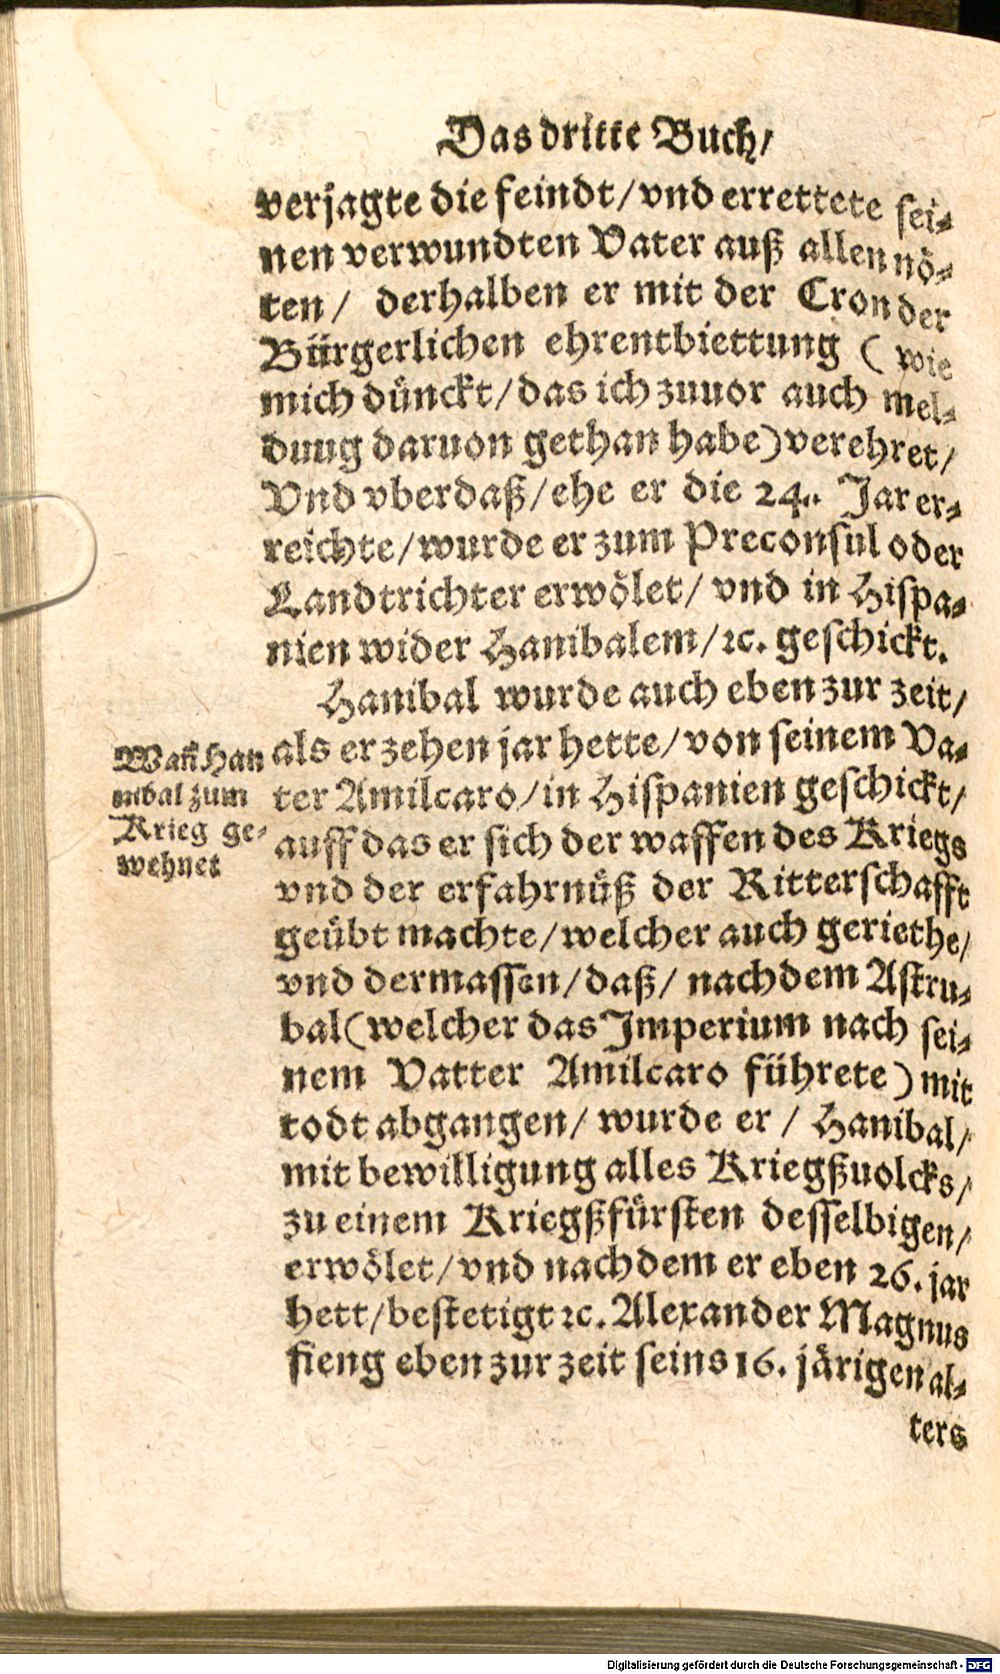 Das dritte Buch/
verjagte die feindt/vnd errettete sei⸗
nen verwundten Vater auß allen nö⸗
ten/ derhalben er mit der Cron der
Bürgerlichen ehrentbiettung (wie
mich dünckt/das ich zuuor auch mel⸗
dung daruon gethan habe)verehret/
Vnd vberdaß/ehe er die 24. Jar er⸗
reichte/wurde er zum Preconsul oder
Landtrichter erwölet/ vnd in Hispa⸗
nien wider Hanibalem/ꝛc. geschickt.
Hanibal wurde auch eben zur zeit/
als er zehen jar hette/von seinem Va⸗
ter Amilcaro/in Hispanien geschickt/
auff das er sich der waffen des Kriegs
vnd der erfahrnüß der Ritterschafft
geübt machte/welcher auch geriethe/
vnd dermassen/daß/ nachdem Astru⸗
bal(welcher das Imperium nach sei⸗
nem Vatter Amilcaro führete)mit
todt abgangen/ wurde er / Hanibal/
mit bewilligung alles Kriegßuolcks/
zu einem Kriegßfürsten desselbigen/
erwölet/vnd nachdem er eben 26. jar
hett/bestetigt ꝛc. Alexander Magnus
fieng eben zur zeit seins 16. järigen al⸗
ters
Wañ Han
nibal zum
Krieg ge⸗
wehnet
Digitalisierung gefördert durch die Deutsche Forschungsgemeinschaft - DFG